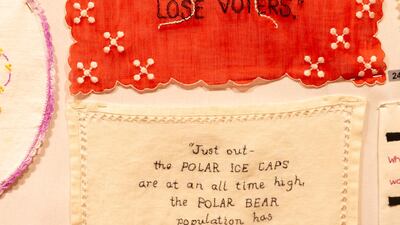 LOSE VOTERS."
24
"Just out-
the POLAR ICE CAPS
are at an all time high,
the POLAR BEAR
population has